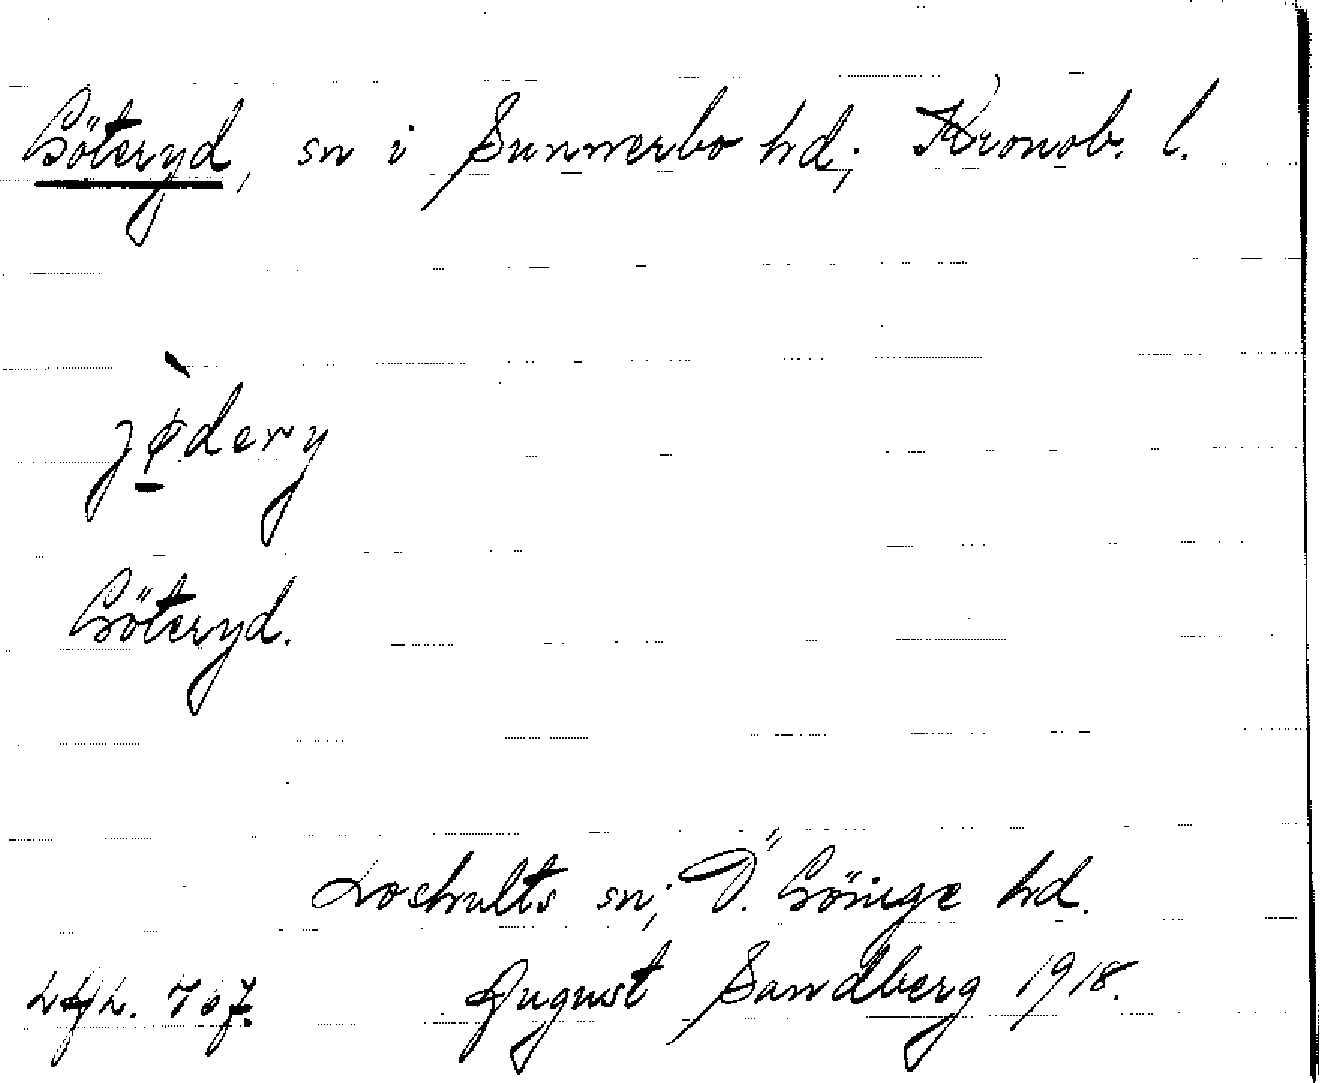 Göteryd, sn i Sunnerbo hd; Kronob. l.
jø̀dery
Göteryd.
Loshults sn; Ö. Göinge hd.
August Sandberg 1918.